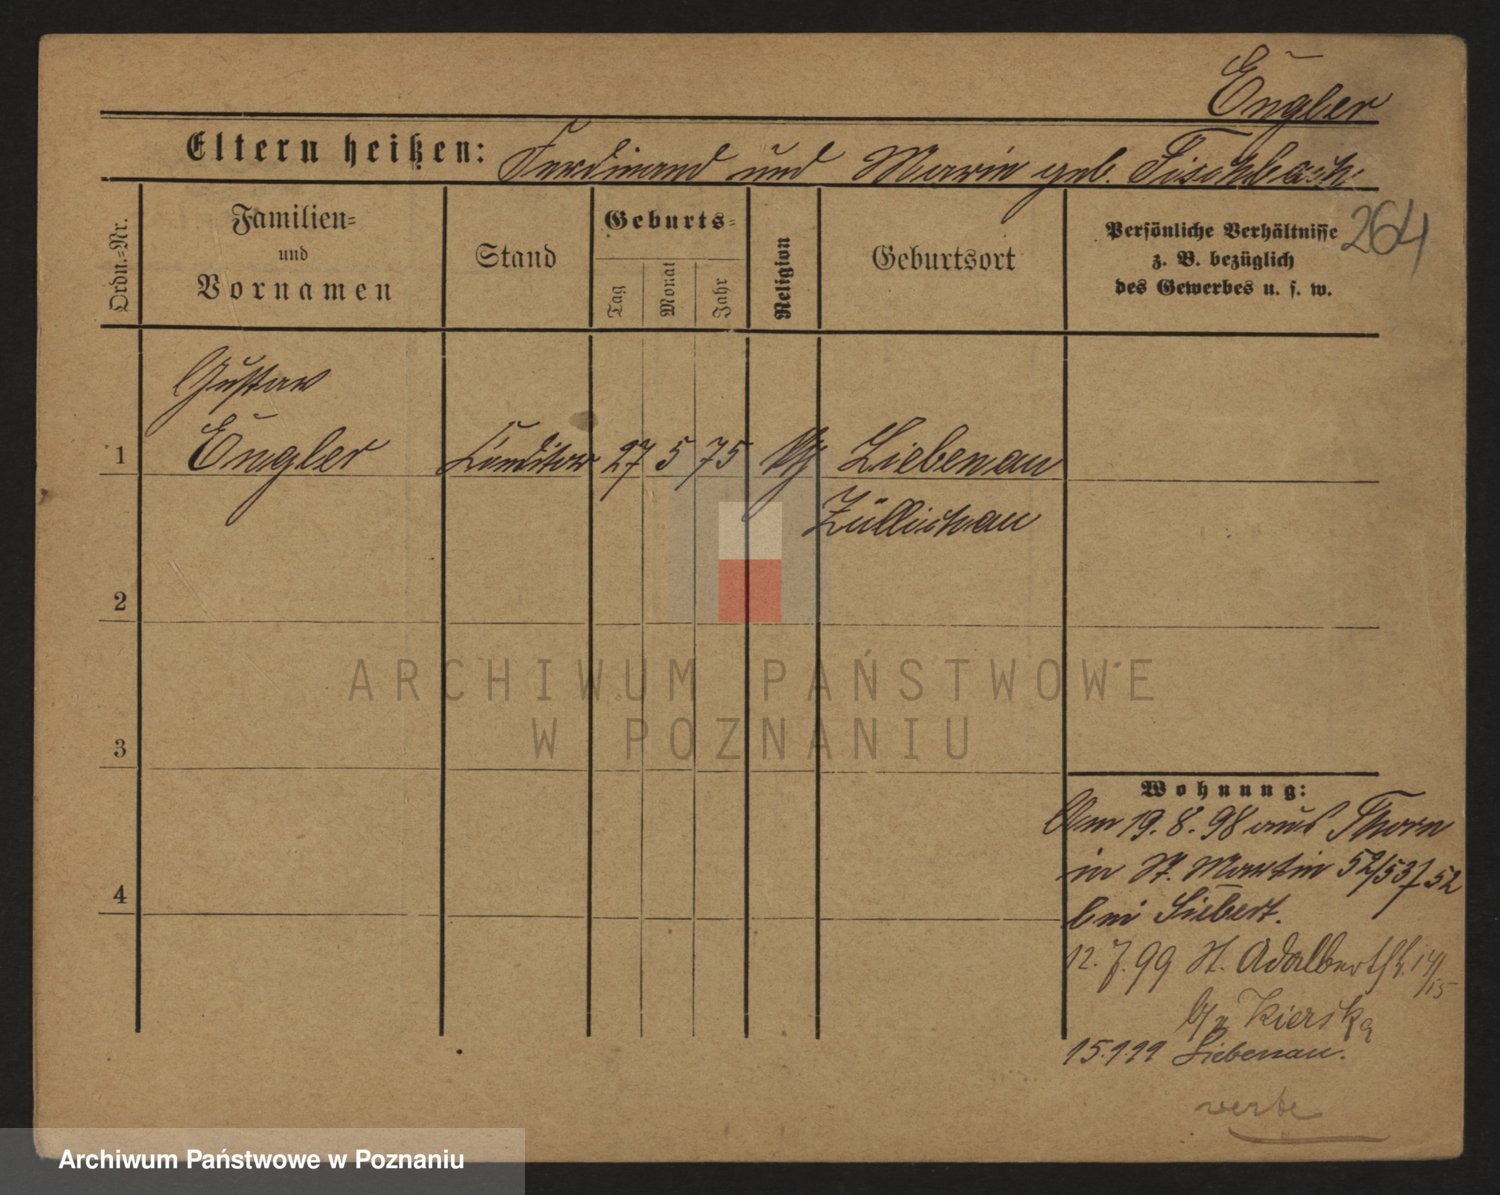 Engler
Eltern heißen: Ferdinand und Marie geb. Fischbach
264
Ordn.-Nr.
Familien-
und
Vornamen
Stand
Geburts-
Tag
Monat
Jahr
Religion
Geburtsort
Persönliche Verhältnisse
z. B. bezüglich
des Gewerbes u. s. w.
Gustav
1 Engler Konditor 27 5 75 Liebenau
Züllichau
2
ARCHIWUM PAŃSTWOWE
W POZNANIU
3
Wohnung:
Am 19. 8. 98 aus Thorn
in St. Martin 52/53
4
bei Siebert.
12. 7. 99 St. Adalbertstr. 14/15
b/ Kierska
Liebenau.
verte
Archiwum Państwowe w Poznaniu